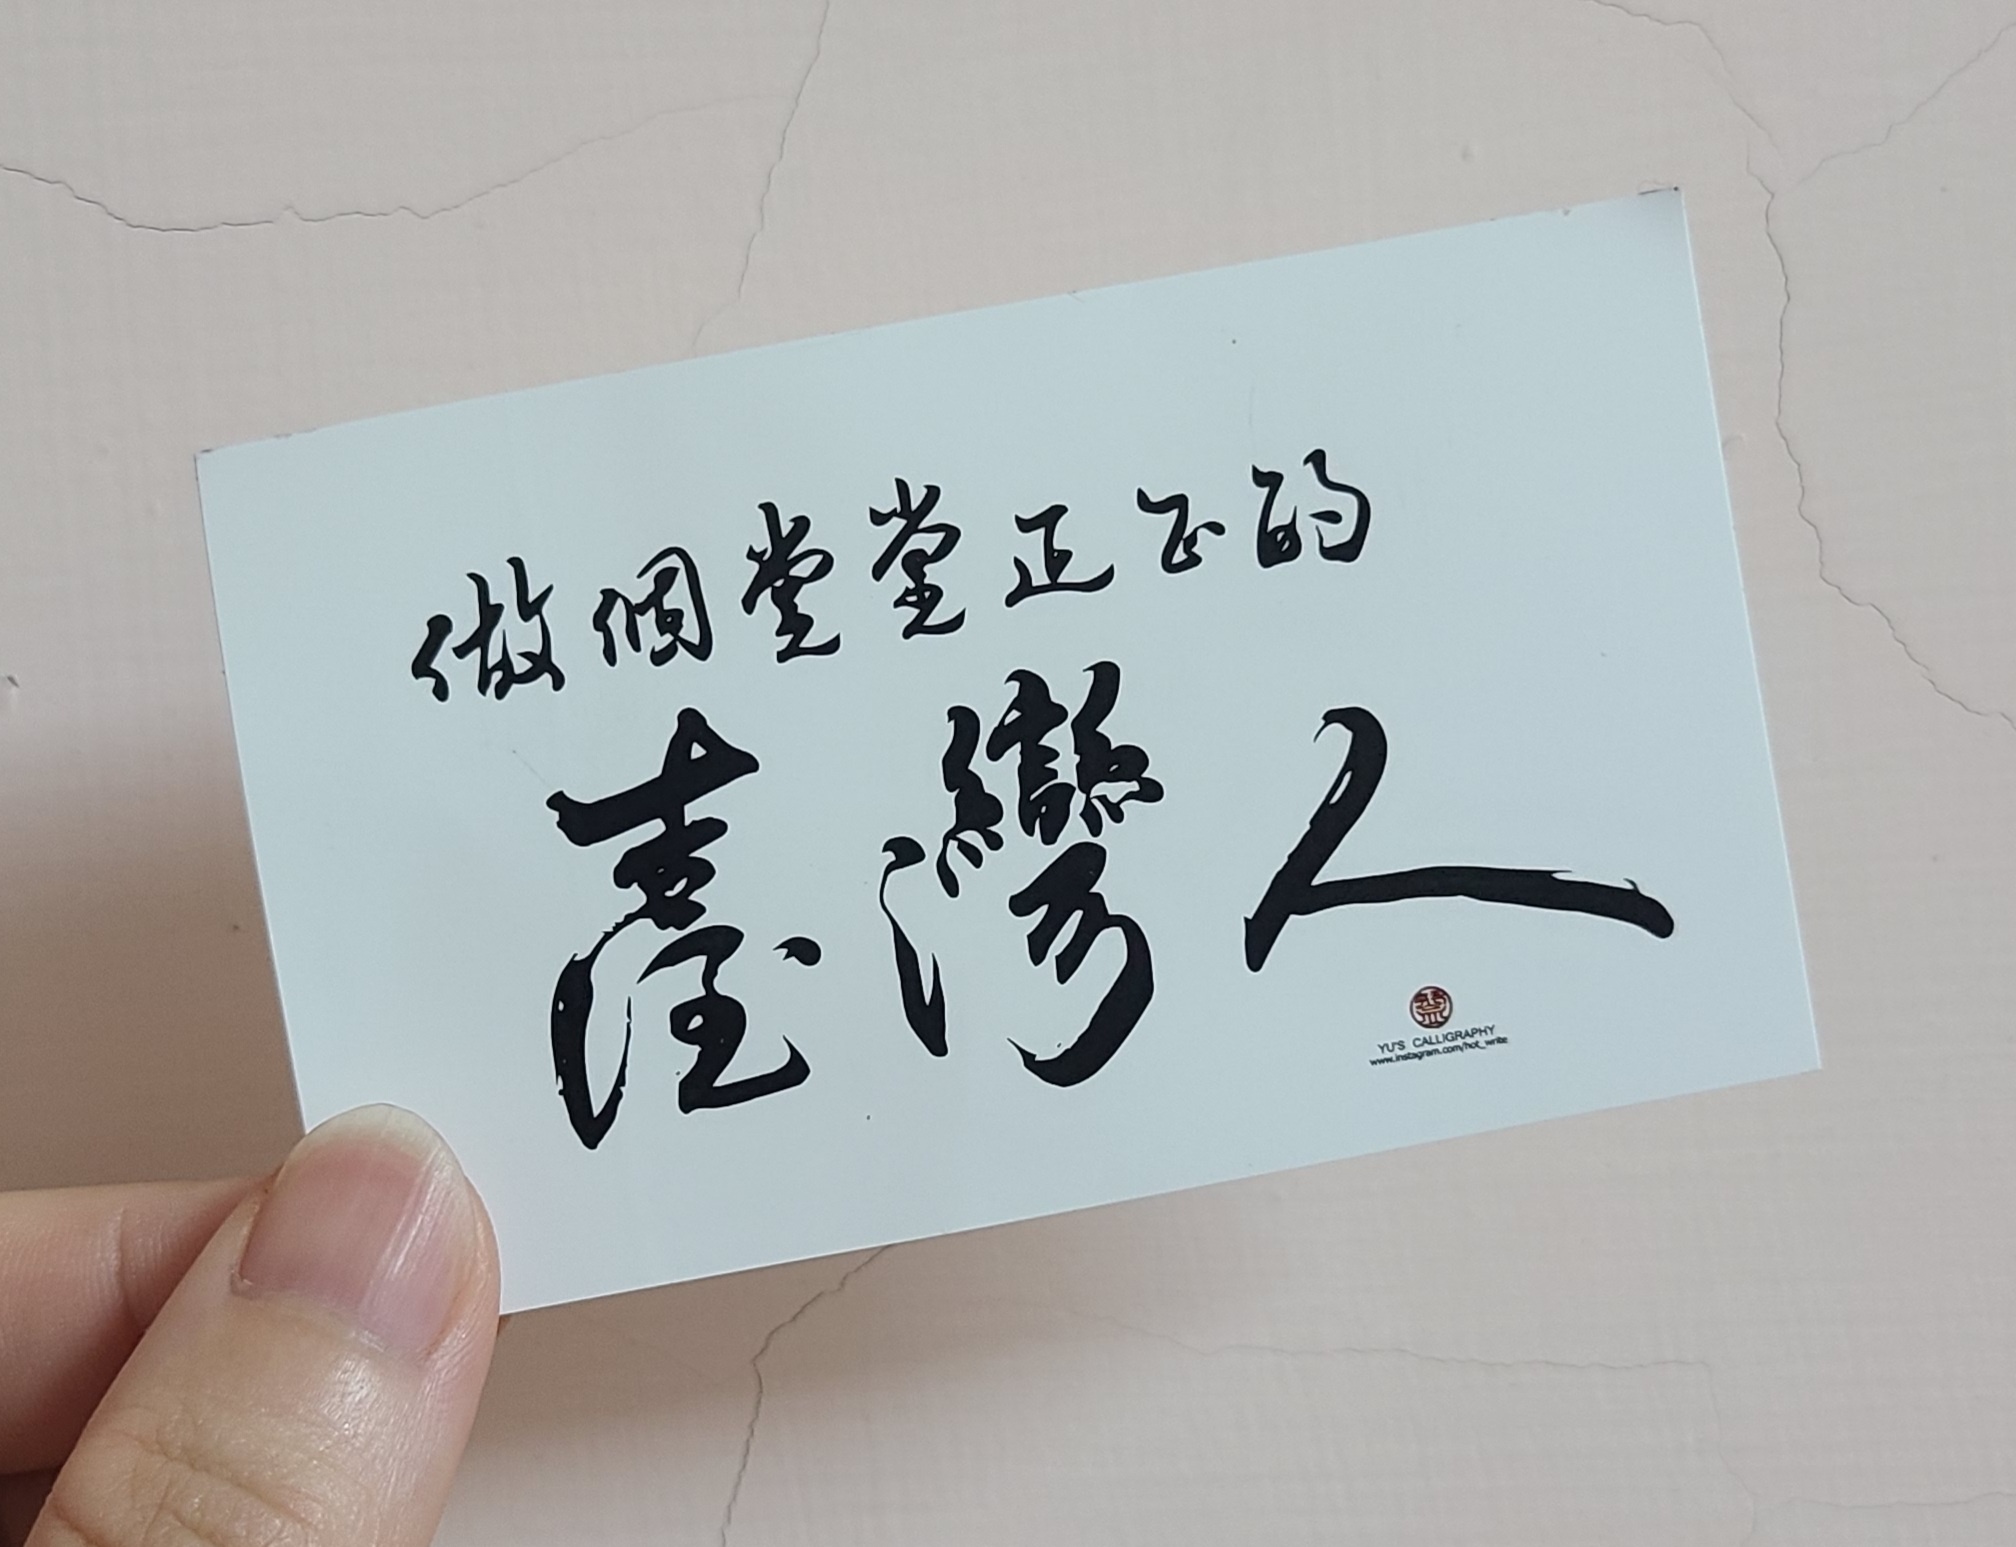 做個堂堂正正的
臺灣人
YU'S CALLIGRAPHY
www.instagram.com/hot_write